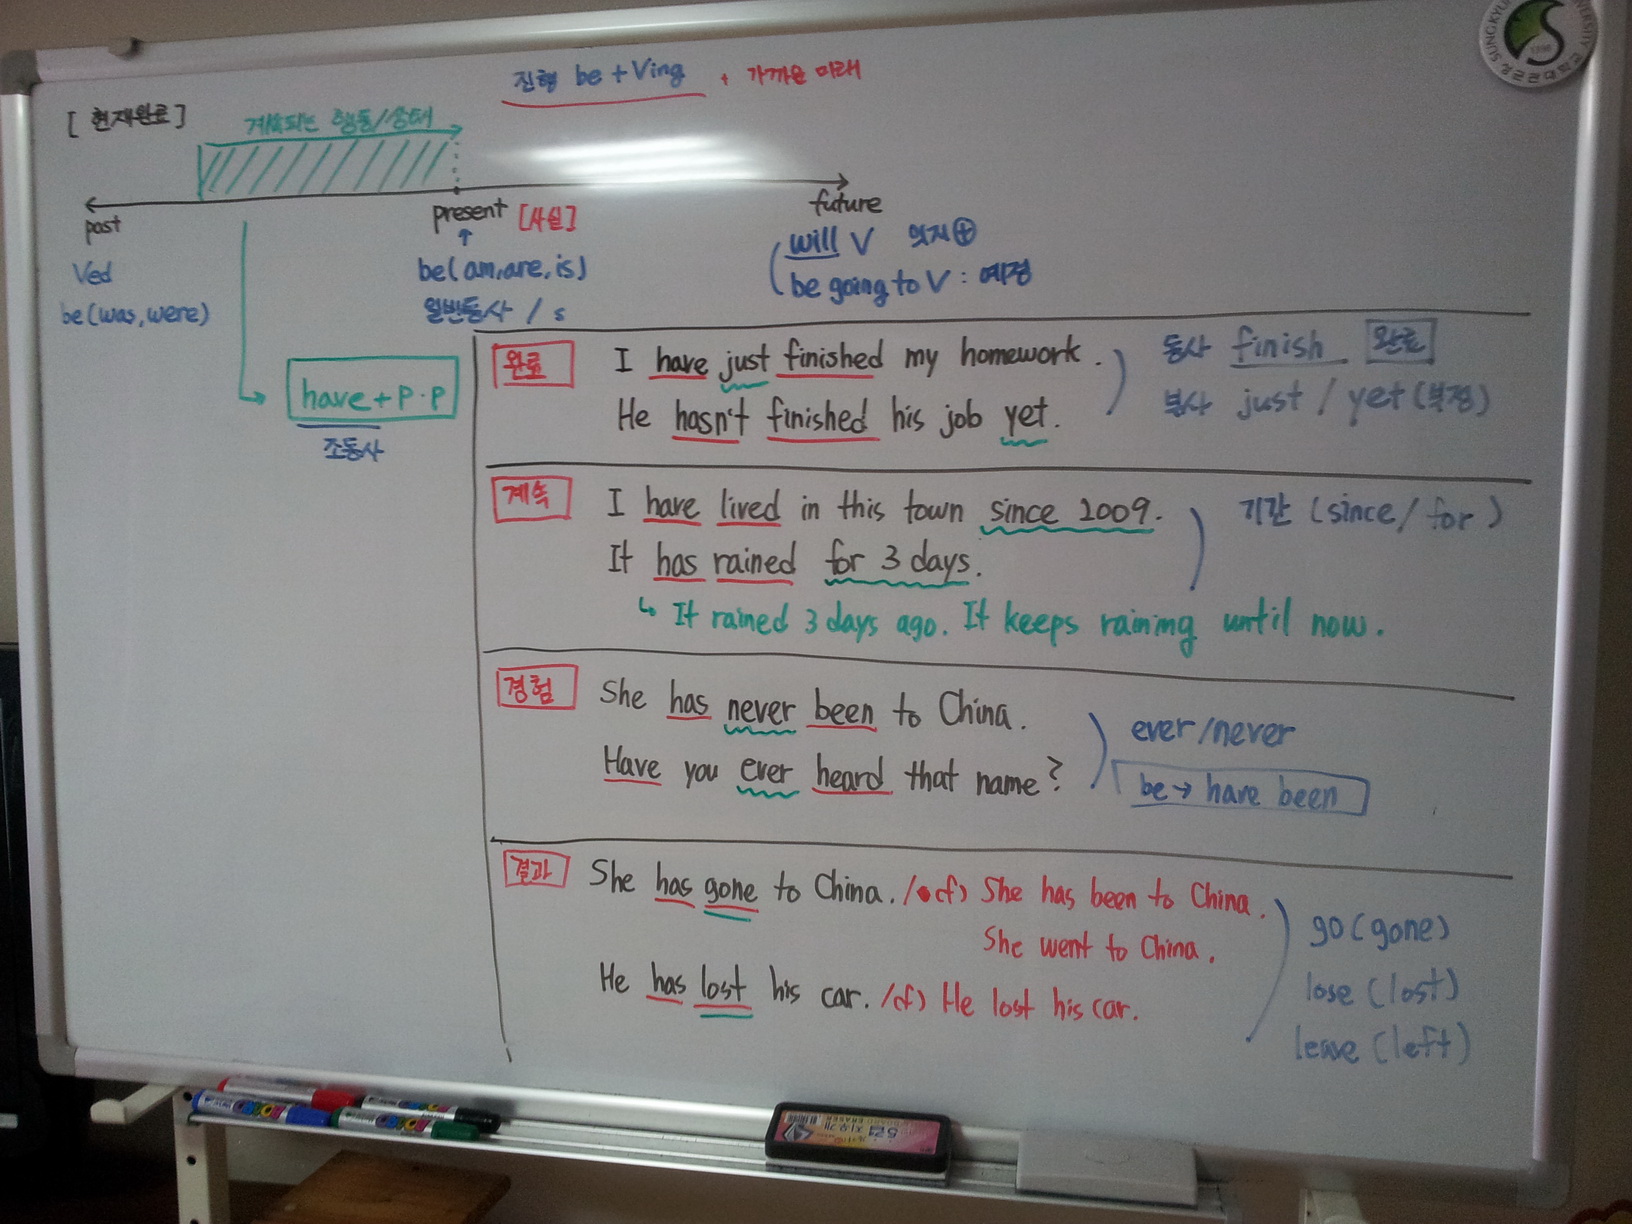 진행 be + Ving + 가까운 미래
[ 현재완료 ]
계속되는 행동/상태
past
present [사실]
future
Ved
be(was, were)
be(am, are, is)
일반동사 / s
will V 의지⊕
be going to V : 예정
have + P.P
조동사
완료
I have just finished my homework.
He hasn't finished his job yet.
동사 finish 완료
부사 just / yet (부정)
계속
I have lived in this town since 2009.
It has rained for 3 days.
↳ It rained 3 days ago. It keeps raining until now.
기간 (since / for)
경험
She has never been to China.
Have you ever heard that name?
ever/never
be → have been
결과
She has gone to China. / cf) She has been to China.
She went to China.
He has lost his car. / cf) He lost his car.
go (gone)
lose (lost)
leave (left)
성균관대학교